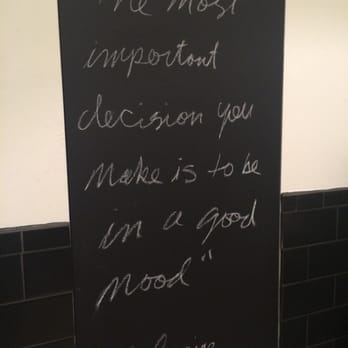 The most
important
decision you
make is to be
in a good
mood"